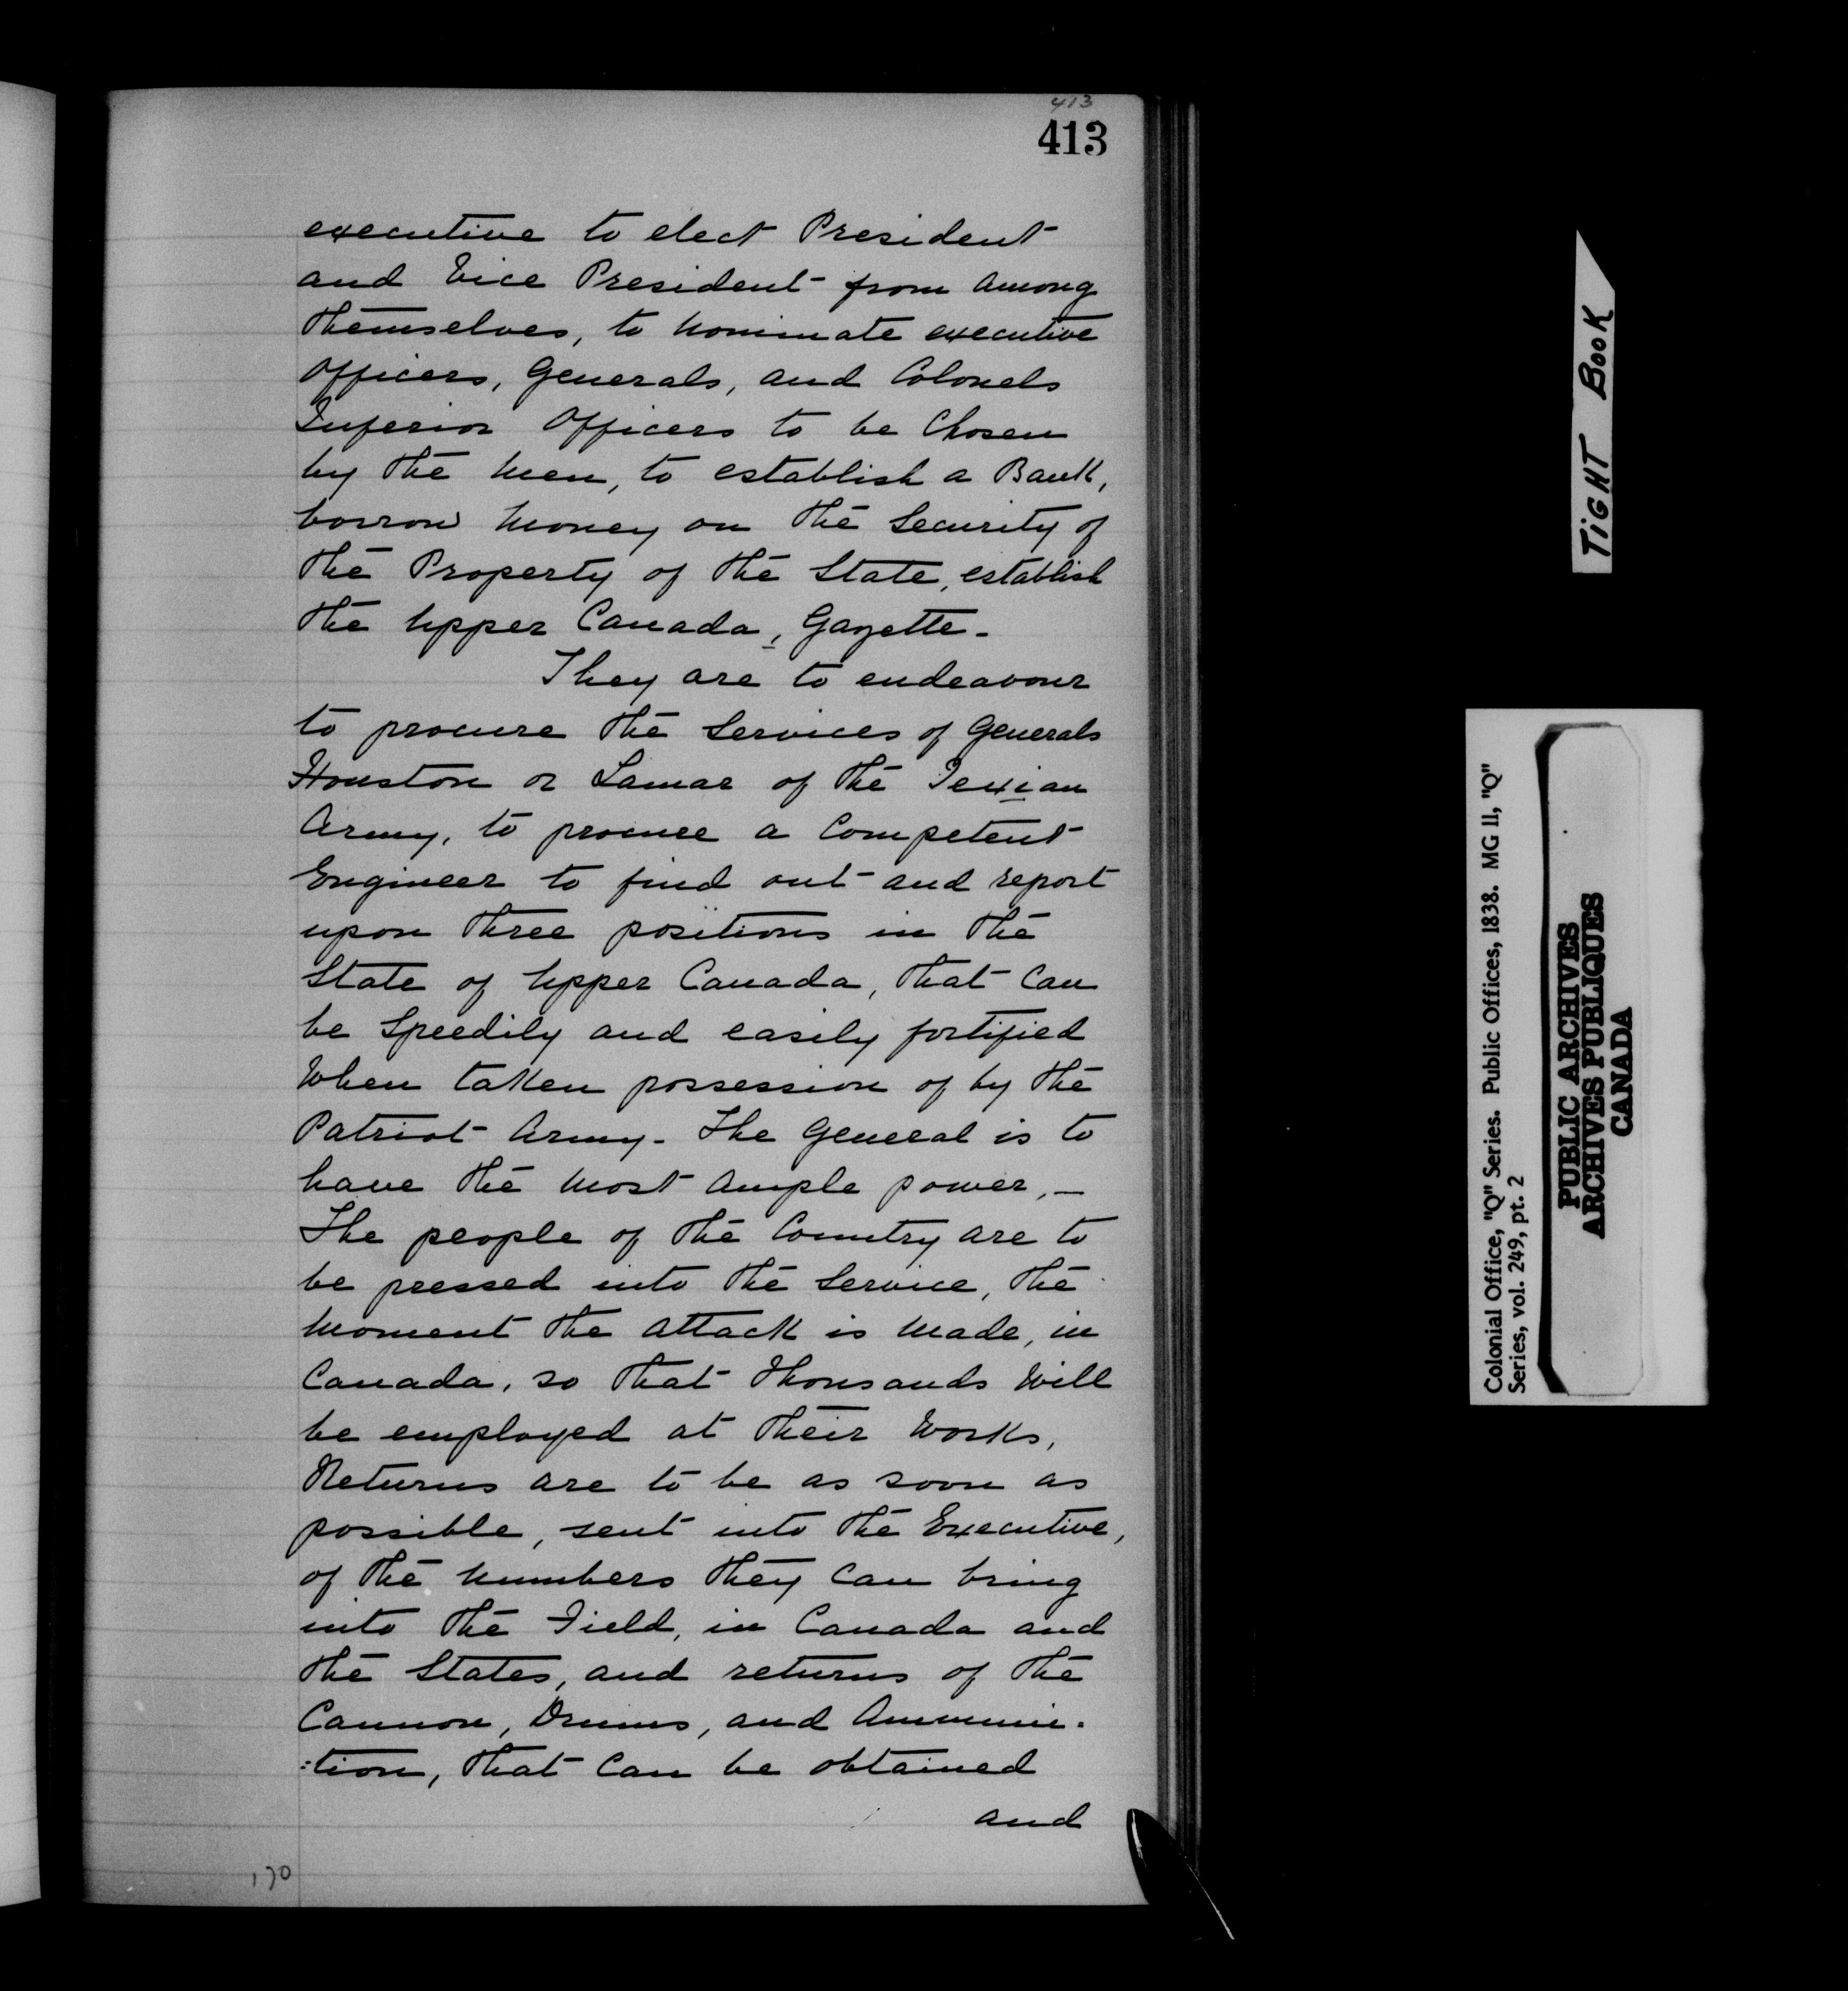 413
413
executive to elect President
and Vice President from among
themselves, to nominate executive
Officers, Generals, and Colonels
Inferior Officers to be Chosen
by the men, to establish a Bank,
borrow money on the Security of
the Property of the State, establish
the Upper Canada, Gazette-
They are to endeavour
to procure the Services of Generals
Houston or Lamar of the Texian
Army, to procure a Competent
Engineer to find out and report
upon three positions in the
State of Upper Canada, that Can
be Speedily and easily fortified
When taken possession of by the
Patriot Army- The General is to
have the most ample power,-
The people of the Country are to
be pressed into the Service, the
moment the attack is made, in
Canada, so that thousands Will
be employed at their Works,
Returns are to be as soon as
possible, sent into the Executive,
of the numbers they Can bring
into the Field, in Canada and
the States, and returns of the
Cannon, Drums, and Ammuni-
:tion, that Can be obtained
and
170
TIGHT BOOK
Colonial Office, "Q" Series. Public Offices, 1838. MG 11, "Q"
Series, vol. 249, pt. 2
PUBLIC ARCHIVES
ARCHIVES PUBLIQUES
CANADA